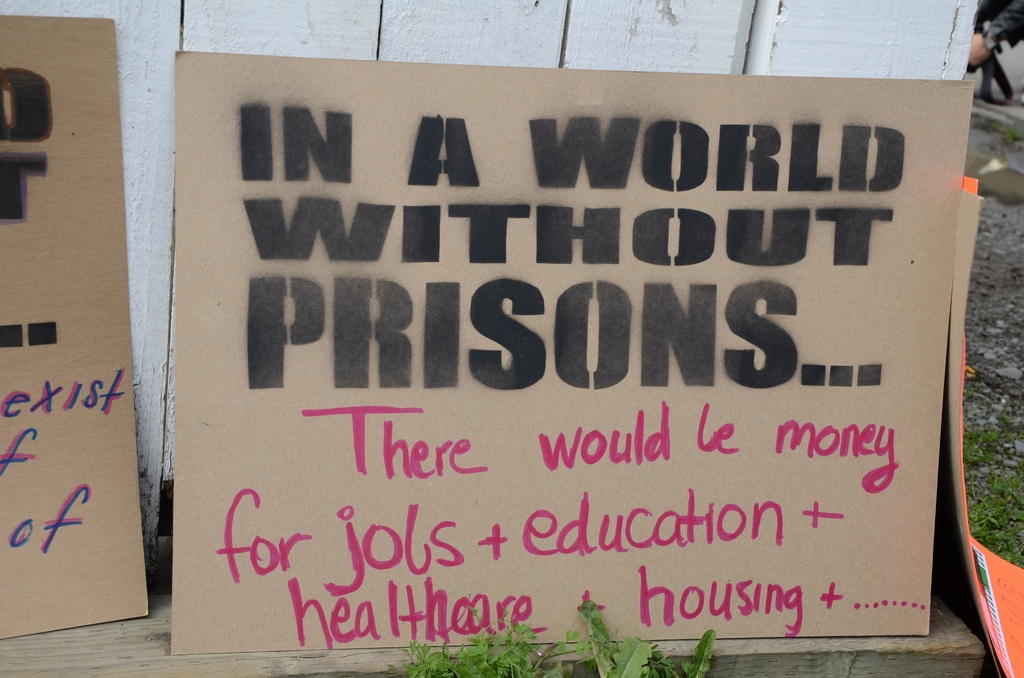 IN A WORLD
WITHOUT
PRISONS...
There would be money
for jobs + education +
healthcare + housing + ........
exist
f
of